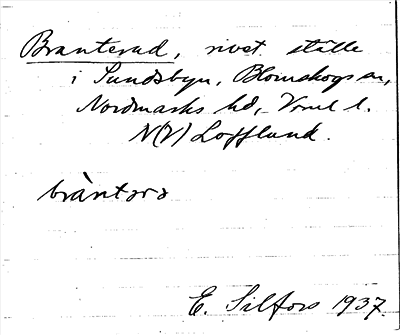 Branterud, rivet ställe
i Sundsbyn, Blomskogs sn,
Nordmarks hd, Vrml l.
N(V) Loffland.
bràntərə
E. Silfors 1937.